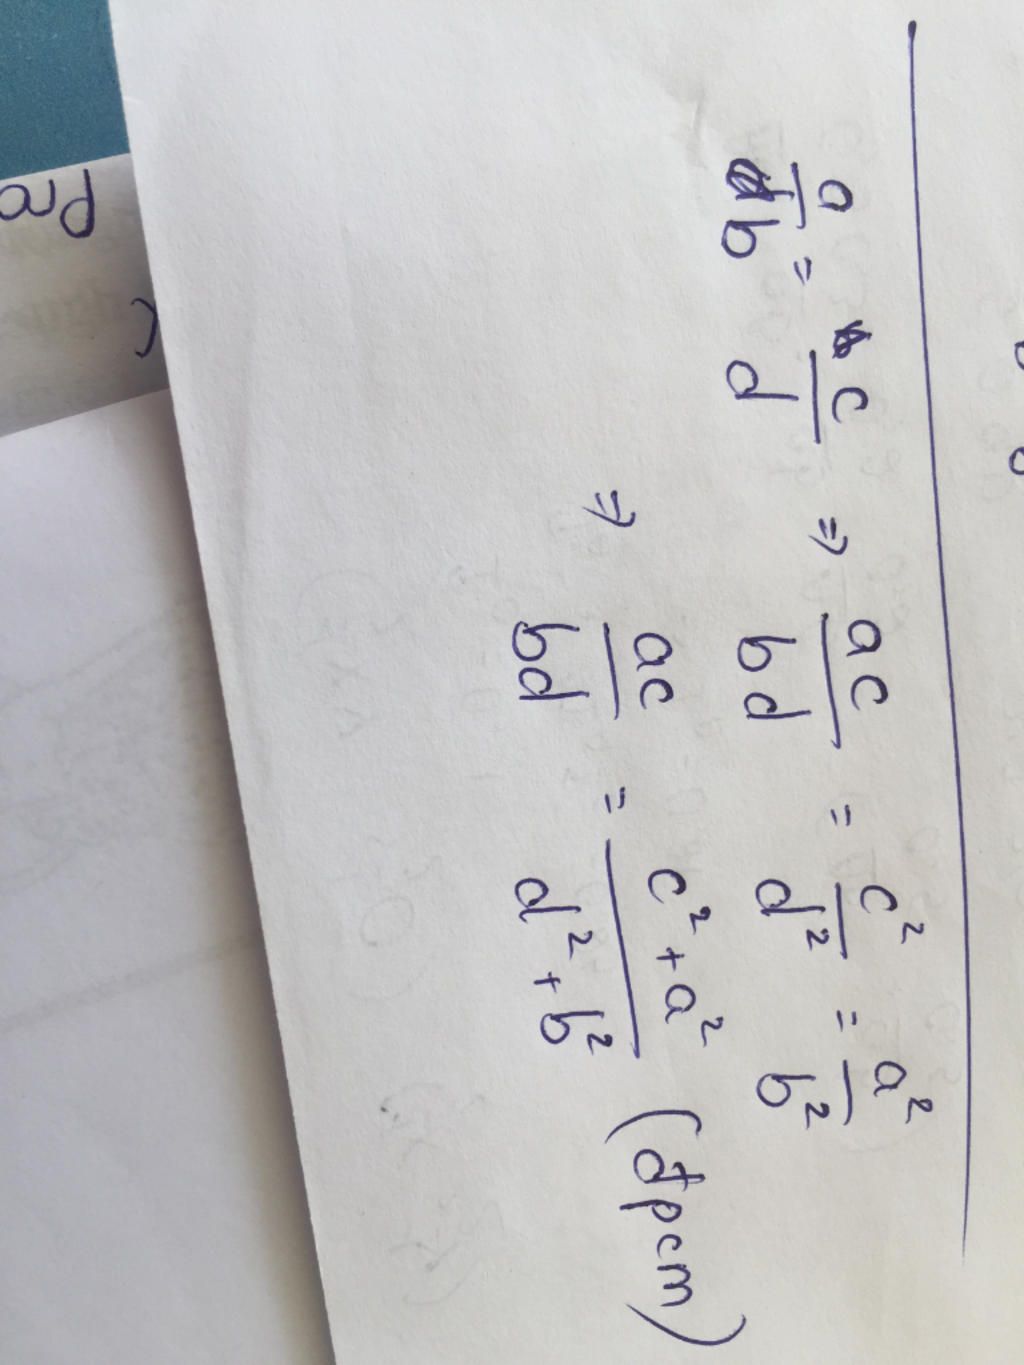 a/b = c/d ⇒ ac/bd = c²/d² = a²/b²
⇒ ac/bd = c²+a²/d²+b² (đpcm)
Pro